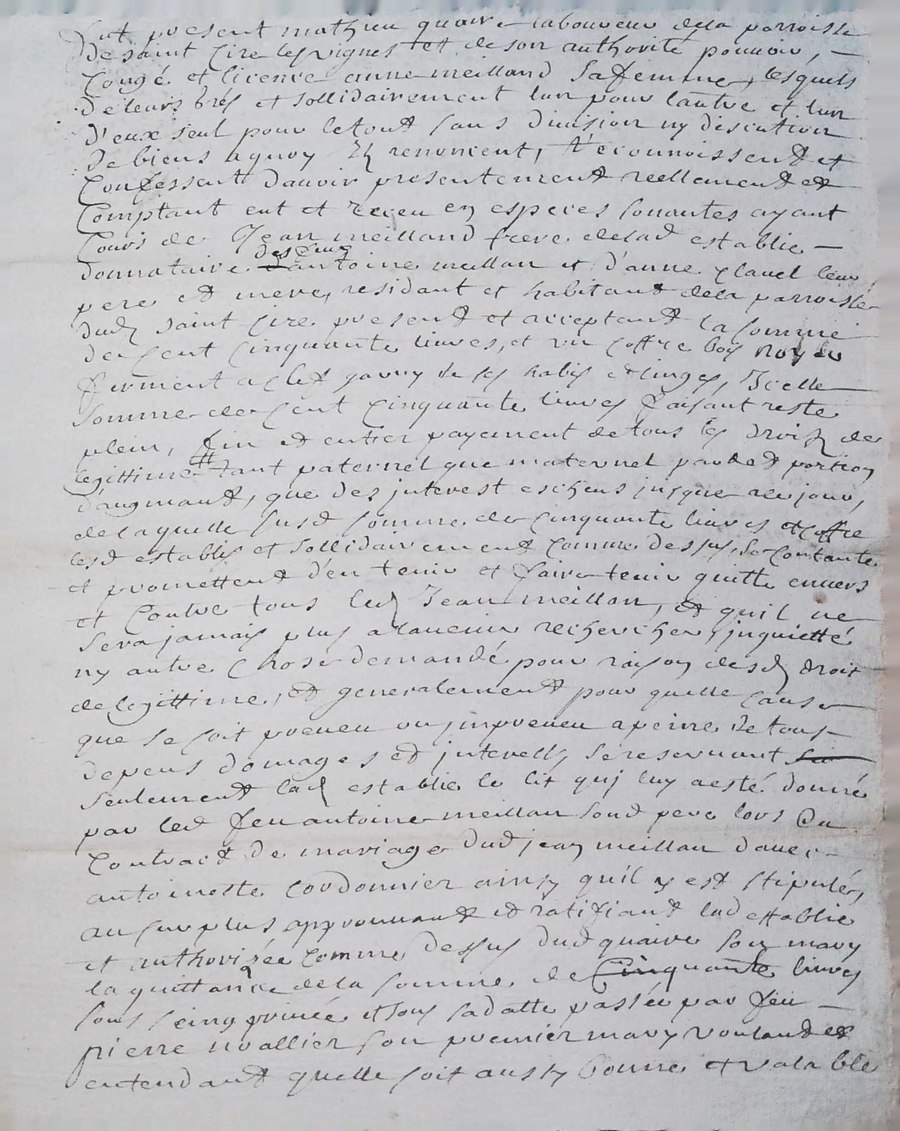 fut present mathieu quaire laboureur dela parroisse
de saint Cire les vignes et de son authorité pouvoir,
Congé et licence anne meilland sa femme, lesquels
de leurs grés et sollidairement lun pour lautre et lun
d'eux seul pour le tout sans division ny discution
de biens aquoy ils renoncent, reconnoissent et
Confessent d'avoir presentement reellement et
Comptant eut et receu en especes sonantes ayant
Cours de Jean meilland frere de lad establie
donnataire des feus antoine meillan et d'anne clavel leur
pere et mere, residant et habitant dela parroisse
dud saint Cire present et acceptant la somme
de Cent Cinquante livres, et un Coffre bois noyer
firment a clef garny de ses habis et linges, Icelle
somme de Cent Cinquante livres faisant reste
plein, fin et entier payement de tous les droits de
legittime tant paternel que maternel part et portion
d'augmant, que des interest escheus jusque a ce jour,
de laquelle susd somme de Cinquante livres et Coffre
lesd establis et sollidairement Comme dessus, se Contante
et promettent d'en tenir et faire tenir quitte envers
et Contre tous led Jean meillan, et quil ne
sera jamais plus a lavenir recherché, inquietté
ny autre Chose demandé pour raison desd droit
de legittime, et generalement pour quelle Cause
que se soit preveu ou impreveu a peine de tous
depens domages et interests, se reservant
seulement lad establie le lit qui luy a esté donné
par led feu antoine meillan sond pere lors du
Contract de mariage dud jean meillan avec
antoinette Cordonnier ainsy qu'il y est stipulés,
au surplus approuvant et ratifiant lad establie
et authorizée Comme dessus dud quaire son mary
la quittance dela somme de Cinquante livres
sous seing privée et sous sa datte passée par feu
pierre nvallier son premier mary voulant et
entendant quelle soit aussy bonne et valable